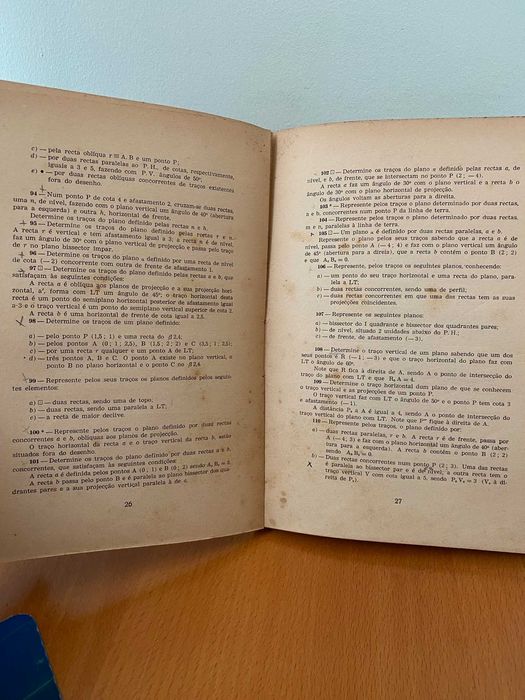 c) — pela recta oblíqua r ≡ A.B e um ponto P;
d) — por duas rectas paralelas ao P.H., de cotas, respectivamente,
iguais a 3 e 5, fazendo com P.V. ângulos de 50º.
e) * — por duas rectas oblíquas concorrentes de traços existentes
fora do desenho.
94 — Num ponto P de cota 4 e afastamento 2, cruzam-se duas rectas,
uma n, de nível, fazendo com o plano vertical um ângulo de 40º (abertura
para a esquerda) e outra h, horizontal de frente.
Determine os traços do plano definido pelas rectas n e h.
95 — Determine os traços do plano definido pelas rectas r e n.
A recta r é vertical e tem afastamento igual a 3; a recta n é de nível,
faz um ângulo de 30º com o plano vertical de projecção e passa pelo traço
de r no plano bissector ímpar.
96 — Determine os traços do plano definido por uma recta de nível
de cota (— 2) concorrente com outra de frente de afastamento 1.
97 — Determine os traços do plano definido pelas rectas a e b, que
satisfaçam às seguintes condições:
A recta a é oblíqua aos planos de projecção e a sua projecção hori-
zontal, a', forma com LT um ângulo de 45º, o traço horizontal desta
recta é um ponto do semiplano horizontal posterior de afastamento igual
a-3 e o traço vertical é um ponto do semiplano vertical superior de cota 2.
A recta b é uma horizontal de frente de cota igual a 2,5.
98 — Determine os traços de um plano definido:
a) — pelo ponto P (1,5; 1) e uma recta do β 2,4;
b) — pelos pontos A (0; 1; 2,5), B (1,5; 2; 2) e C (3,5; 1; 2,5);
c) — por uma recta r qualquer e um ponto A de LT;
d) — três pontos A, B e C. O ponto A existe no plano vertical, o
ponto B no plano horizontal e o ponto C no β 2,4
99 — Represente pelos seus traços os planos definidos pelos seguin-
tes elementos:
a) — duas rectas, sendo uma de topo;
b) — duas rectas, sendo uma paralela a LT;
c) — a recta de maior declive.
100 * — Represente pelos traços o plano definido por duas rectas
concorrentes a e b, oblíquas aos planos de projecção.
O traço horizontal da recta a e o traço vertical da recta b, estão
situados fora do desenho.
101 — Determine os traços do plano definido por duas rectas a e b,
concorrentes, que satisfaçam às seguintes condições:
A recta a é definida pelos pontos A (0; 1) e B (0; 2) sendo
A recta b passa pelo ponto B e é paralela ao plano bissector dos qua-
drantes pares e a sua projecção vertical paralela à de a.
26
102 — Determine os traços do plano α definido pelas rectas a, de
nível, e b, de frente, que se intersectam no ponto P (2; — 4).
A recta a faz um ângulo de 30º com o plano vertical e a recta b o
ângulo de 30º com o plano horizontal de projecção.
Os ângulos voltam as aberturas para a direita.
103 * — Represente pelos traços o plano determinado por duas rectas,
a e b, concorrentes num ponto P da linha de terra.
104 — Represente pelos traços o plano determinado por duas rectas,
m e n, paralelas à linha de terra.
105 — Um plano α é definido por duas rectas paralelas, a e b.
Represente o plano pelos seus traços sabendo que a recta a é de
nível, passa pelo ponto A (— 4; 4) e faz com o plano vertical um ângulo
de 45º (abertura para a direia), e que a recta b contém o ponto B (2; 2)
e que
106 — Represente, pelos traços os seguintes planos, conhecendo:
a) — um ponto do seu traço horizontal e uma recta do plano, para-
lela a LT;
b) — duas rectas concorrentes, sendo uma de perfil;
c) — duas rectas concorrentes em que uma das rectas tem as suas
projecções coincidentes.
107 — Represente os seguintes planos:
a) — bissector do I quadrante e bissector dos quadrantes pares;
b) — de nível, situado 2 unidades abaixo do P.H.;
c) — de frente, de afastamento (— 3).
108 — Determine o traço vertical de um plano sabendo que um dos
seus pontos é R (— 1; — 3) e que o traço horizontal do plano faz com
LT o ângulo de 60º.
Note que R fica à direita de A, sendo A o ponto de intersecção do
traço do plano com LT e que
109 — Determine o traço horizontal dum plano de que se conhecem
o traço vertical e as projecções de um ponto P.
O traço vertical faz com LT o ângulo de 50º e o ponto P tem cota 3
e afastamento (— 1).
A distância de P₀ a A é igual a 4, sendo A o ponto de intersecção do
traço vertical do plano com LT. Note que P'' fique à direita de A.
110 — Represente, pelos traços, o plano definido por:
a) — duas rectas paralelas, r e s. A recta r é de frente, passa por
A (— 4; 5) e faz com o plano horizontal um ângulo de 40º (aber-
tura para a esquerda). A recta s contém o ponto B (2; 2)
sendo
b) — Duas rectas concorrentes num ponto P (2; 3). Uma das rectas
é paralela ao bissector par e é de nível; a outra recta tem o
traço vertical V com cota igual a 5, sendo = 3 (V₀ à di-
reita de P₀).
27